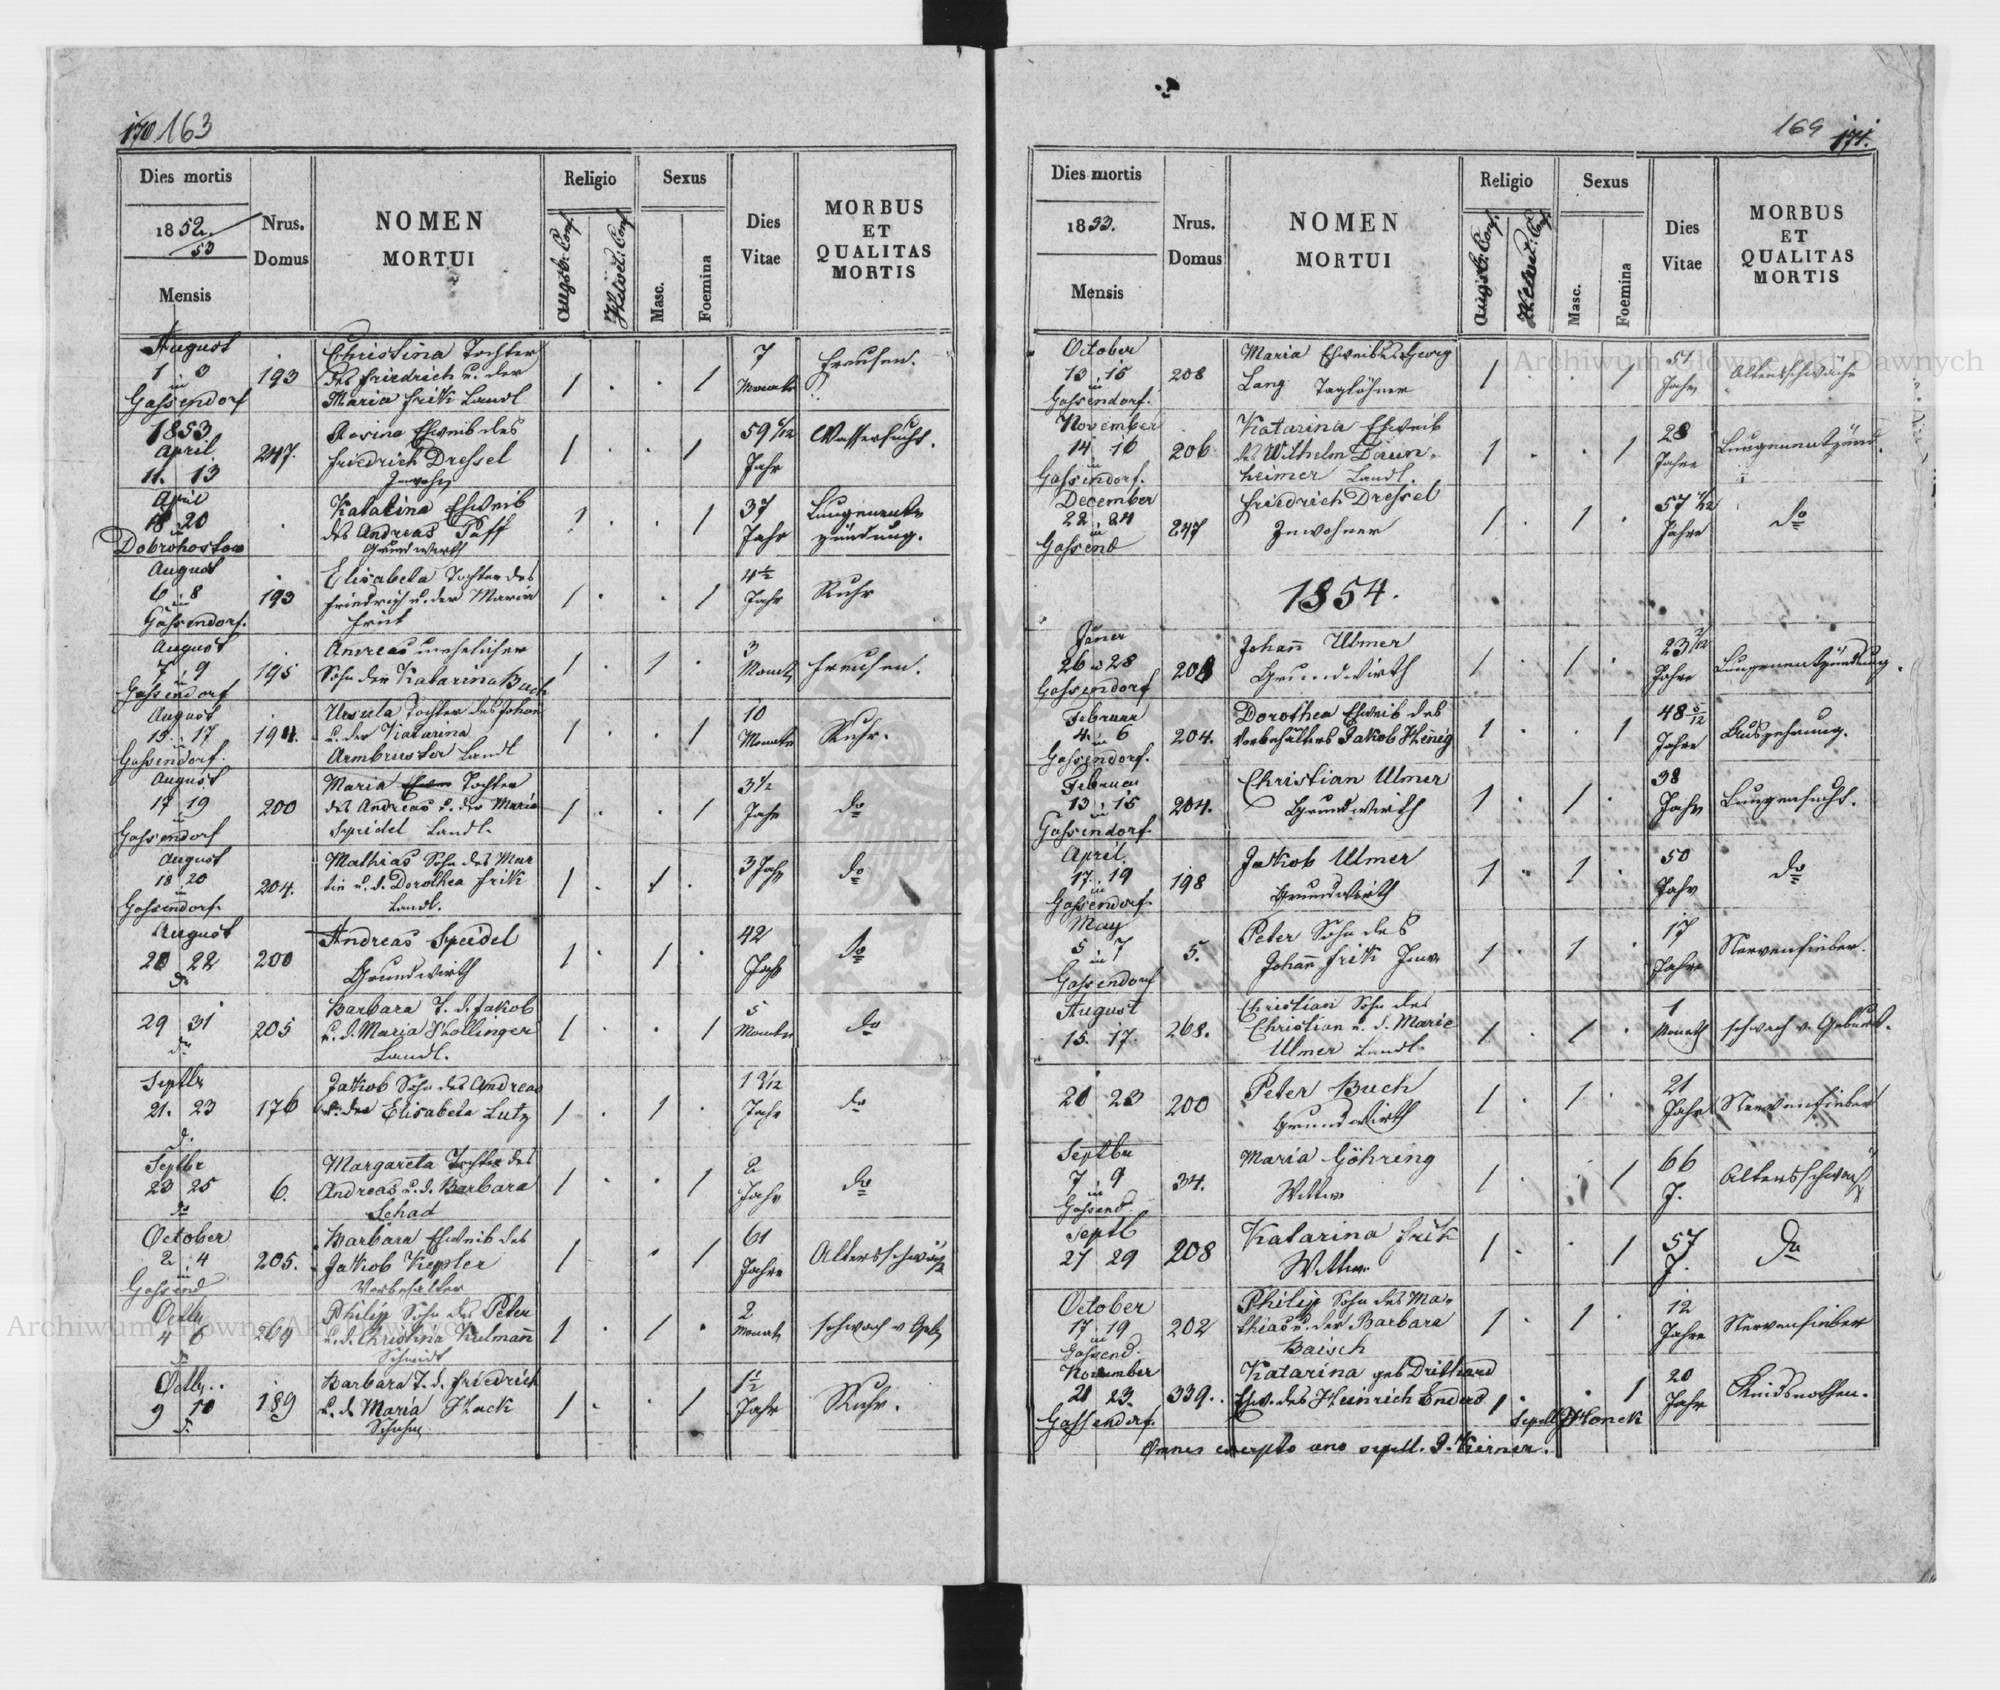 170 163
Dies mortis
1852.
53
Mensis
Nrus.
Domus
NOMEN
MORTUI
Religio
Augsb. Conf.
Helvet. Conf.
Sexus
Masc.
Foemina
Dies
Vitae
MORBUS
ET
QUALITAS
MORTIS
August
1 3
in
Gassendorf
193
Christina Tochter
des Friedrich u. der
Maria Frik Landl
1 . . 1
7
Monate
Freusen.
1853.
April
11. 13
247.
Rosina Eheweib des
Friedrich Dressel
Inwohn
1 . . 1
59 1/12
Jahr
Wassersucht.
April
18 20
in
Dobrohostow
Katarina Eheweib
des Andreas Paff
Grundwirth
1 . . 1
37
Jahr
Lungenent-
zündung.
August
6 8
in
Gassendorf.
193
Elisabeta Tochter des
Friedrich u. der Maria
Frik
1 . . 1
4 1/2
Jahr
Ruhr
August
7 9
in
Gassendorf
195
Andreas unehelicher
Sohn der Katarina Buch
1 . 1 .
3
Monat
Freusen.
August
15 17
in
Gassendorf.
194.
Ursula Tochter des Johan
u. der Katarina
Armbruster Landl
1 . . 1
10
Monate
Ruhr.
August
17 19
in
Gassendorf
200
Maria Tochter
des Andreas u. der Maria
Speidel Landl.
1 . . 1
3 1/2
Jahr
do
August
18 20
in
Gassendorf.
204.
Mathias Sohn des Mar
tin u. d. Dorothea Frik
Landl.
1 . 1 .
3 Jahr
do
August
20 22
d.
200
Andreas Speidel
Grundwirth
1 . 1 .
42
Jahr
do
29 31
do
205
Barbara T. d. Jakob
u. d. Maria Kollinger
Landl.
1 . . 1
5
Monate
do
Septbr
21. 23
d.
176
Jakob Sohn des Andreas
u. der Elisabeta Lutz
1 . 1 .
Jahr
do
Septbr
23 25
do
6.
Margareta Tochter des
Andreas u. d. Barbara
Schad
1 . . 1
2
Jahr
do
October
2 4
in
Gassend
205.
Barbara Eheweib des
Jakob Kepler
Vorbehalter
1 . 1
61
Jahre
Altersschwäche
Octbr
4 6
269
Philip Sohn des Peter
u. d. Christina Kulmann
Schmidt
1 . 1 .
2
Monat
schwach v Geb
Octbr.
9 10
d.
189
Barbara T. d. Friedrich
u. d. Maria Hack
1 . . 1
1 1/2
Jahr
Ruhr.
169 171.
Dies mortis
1853.
Mensis
Nrus.
Domus
NOMEN
MORTUI
Religio
Augsb. Conf.
Helvet. Conf.
Sexus
Masc.
Foemina
Dies
Vitae
MORBUS
ET
QUALITAS
MORTIS
October
13 15
in
Gassendorf.
208
Maria Eheweib des Georg
Lang Taglöhner
1 . . 1
51
Jahr
Altersschwäche
November
14 16
in
Gassendorf.
206
Katarina Eheweib
des Wilhelm Daun-
heimer Landl.
1 . . 1
28
Jahre
Lungenentzünd.
December
22 24
in
Gassend
247
Friedrich Dressel
Inwohner
1 . 1 .
57 1/12
Jahre
do
1854.
Jäner
26 28
Gassendorf
208
Johann Ulmer
Grundwirth
1 . 1 .
23 2/12
Jahre
Lungenentzündung.
Februar
4 6
in
Gassendorf.
204.
Dorothea Eheweib des
Vorbehalters Jakob Henig
1 . . 1
48 5/12
Jahre
Auszehrung.
Februar
13 15
in
Gassendorf.
204.
Christian Ulmer
Grundwirth
1 . 1 .
38
Jahr
Lungensucht.
April
17 19
in
Gassendorf.
198
Jakob Ulmer
Grundwirth
1 . 1 .
50
Jahr
do
May
5 7
in
Gassendorf
5.
Peter Sohn des
Johann Frik Inw.
1 . 1 .
17
Jahre
Nervenfieber.
August
15. 17.
268.
Christian Sohn des
Christian u. d. Marie
Ulmer Landl.
1 . 1 .
1
Monath
schwach v. Geburt.
20 23
200
Peter Buch
Grundwirth
1 . 1 .
21
Jahr
Nervenfieber
Septbr
7 9
in
Gassend
34.
Maria Göhring
Wittwe
1 . . 1
66
J.
Altersschwach
Septb
27 29
208
Katarina Frik
Wittwe
1 . . 1
57
J.
do
October
17 19
in
Gassend.
202
Philip Sohn des Ma-
thias u. der Barbara
Baisch
1 . 1 .
12
Jahre
Nervenfieber
November
21 23.
Gassendorf.
339.
Katarina geb Drithard
Ehw. des Heinrich Enders
1 . . 1
20
Jahr
Kindsnöthen.
Sepell Honek
Omnes excepto uno sepell. J. Kerner.
Archiwum Główne Akt Dawnych
Archiwum Główne Akt Dawnych